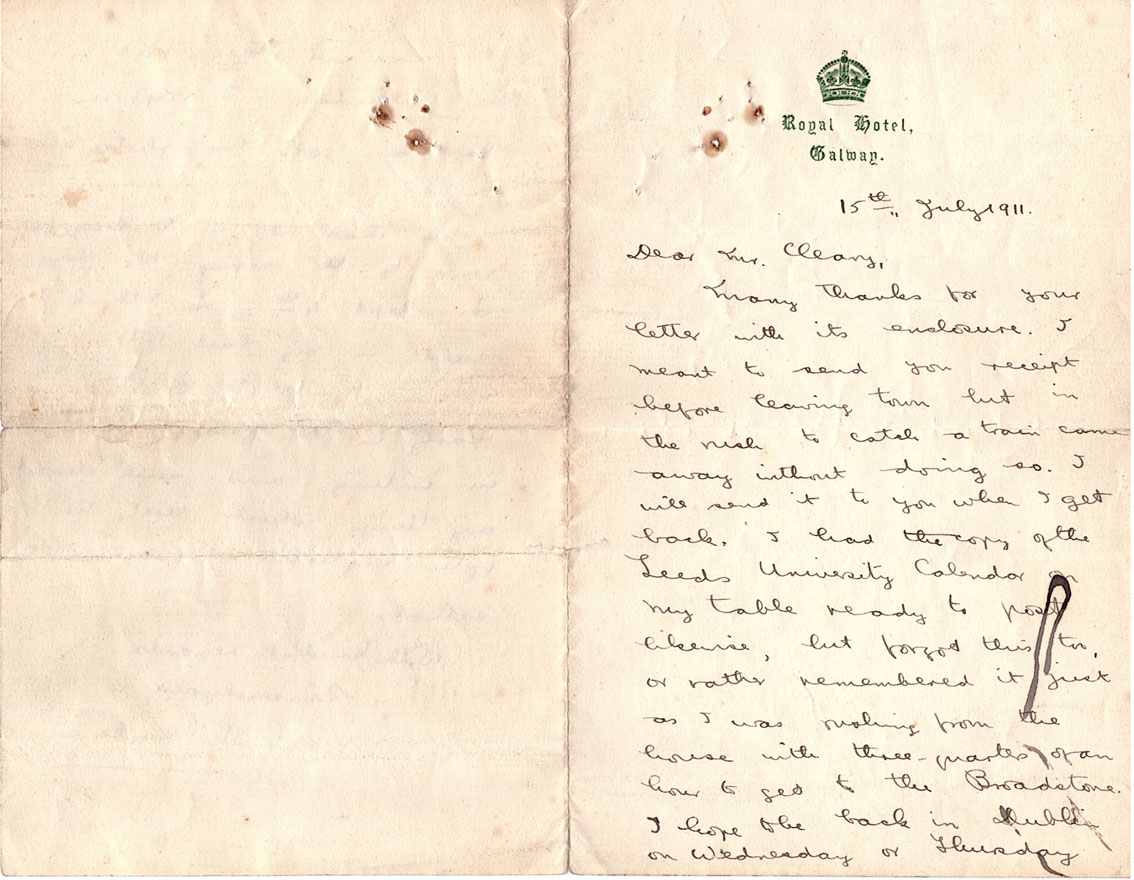 Royal Hotel,
Galway.
15th July 1911.
Dear Mr. Cleary,
Many thanks for your
letter with its enclosure. I
meant to send you receipt
before leaving town but in
the rush to catch a train came
away without doing so. I
will send it to you when I get
back. I had the copy of the
Leeds University Calendar on
my table ready to post
likewise, but forgot this too,
or rather remembered it just
as I was rushing from the
house with three-quarters of an
hour to get to the Broadstone.
I hope to be back in Dublin
on Wednesday or Thursday